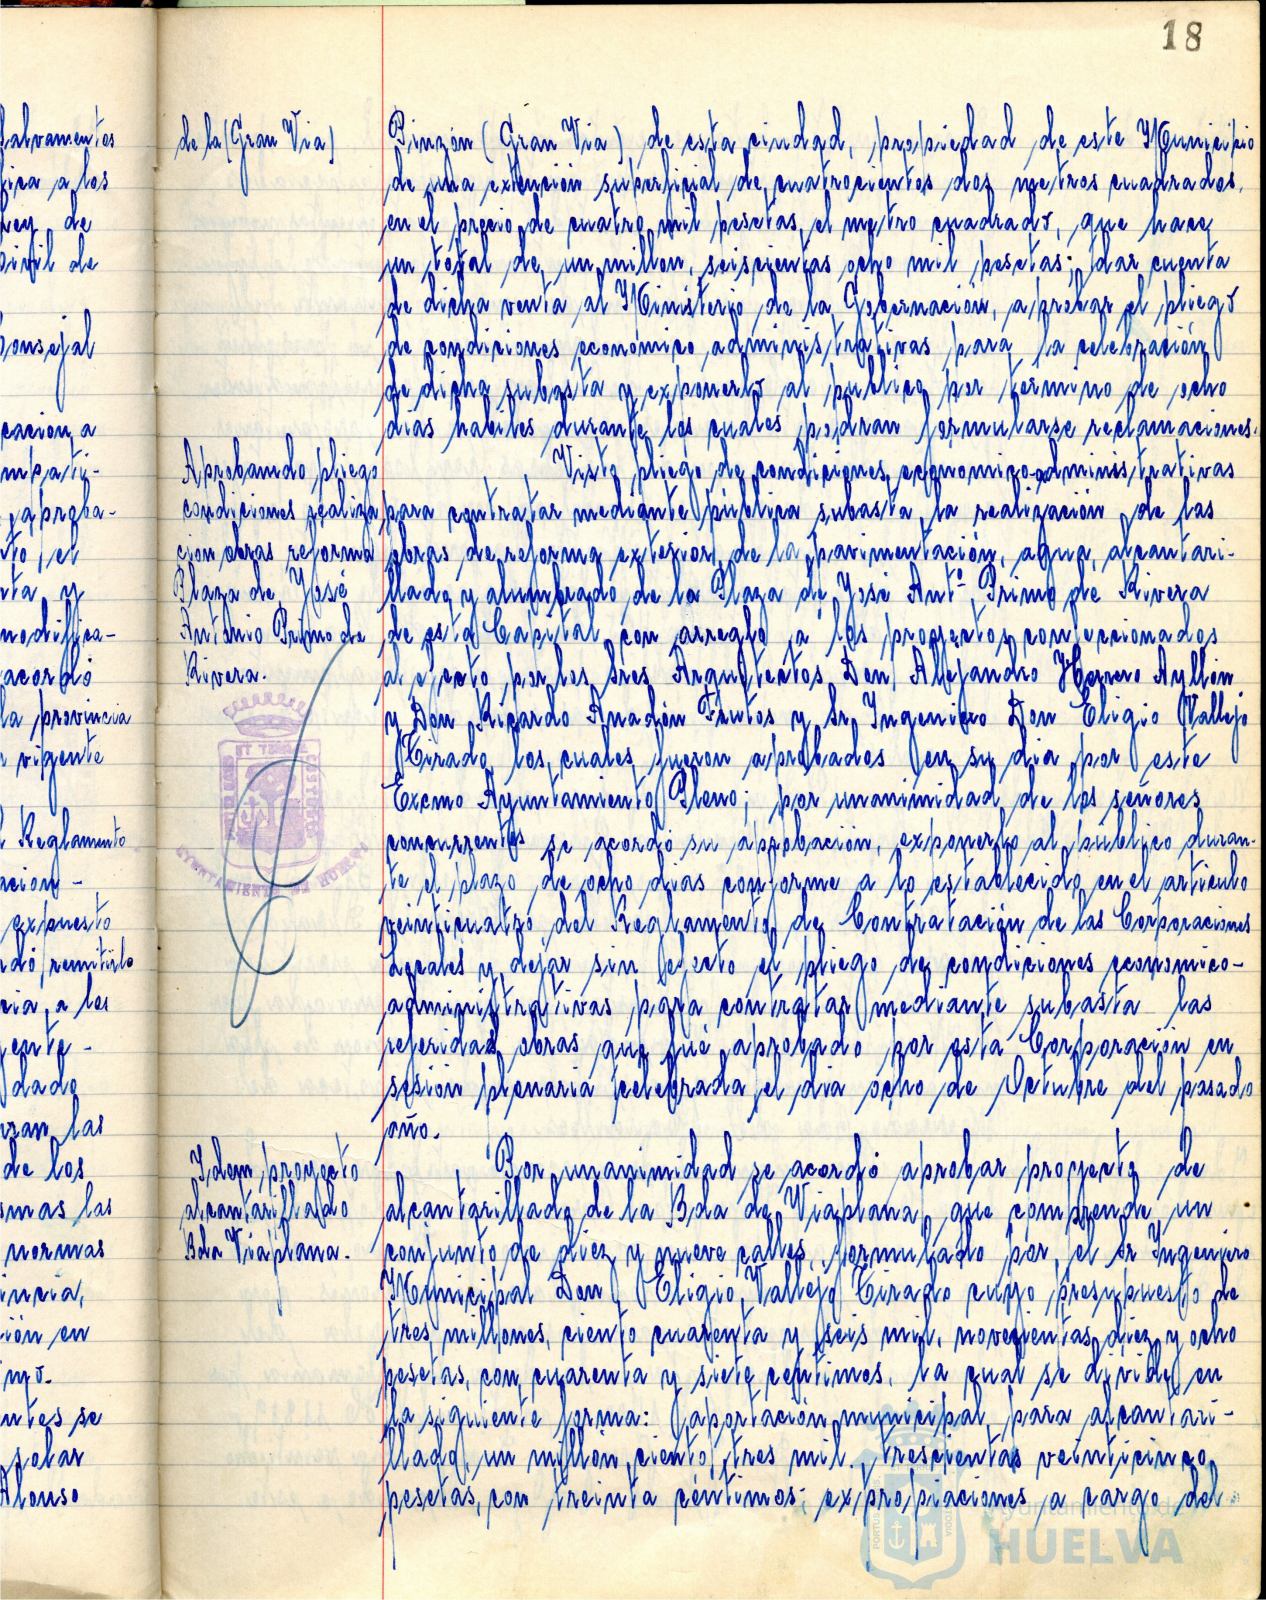 18
salvamentos
fica a los
ley de
civil de
Consejal
cación a
impati-
aproba-
nto, el
nta y
modifica-
acordó
la provincia
vigente
Reglamento
acion-
expuesto
rdó, remitirlo
cia, a los
ente-
dado
zan las
de los
smas las
normas
incia,
ión en
ntes se
solar
Alonso
de la (Gran Via)
Pinzón (Gran Via) de esta ciudad, propiedad de este Municipio
de una extención superficial de cuatrocientos dos metros cuadrados,
en el precio de cuatro mil pesetas, el metro cuadrado, que hace
un total de, un millon, seiscientas ocho mil pesetas; dar cuenta
de dicha venta al Ministerio de la Gobernación, aprobar el pliego
de condiciones economico administrativas para la celebración
de dicha subasta y exponerlo al publico por termino de ocho
dias habiles durante los cuales podran formularse reclamaciones.
Aprobando pliego
condiciones realiza
ción obras reforma
Plaza de José
Antonio Primo de
Rivera.
Visto pliego de condiciones economico-administrativas
para contratar mediante pública subasta la realización de las
obras de reforma exterior de la pavimentación, agua, alcantari-
llado y alumbrado de la Plaza de José Antº Primo de Rivera
de esta Capital con arreglo a los proyectos confeccionados
al efecto por los Sres Arquitectos Don Alejandro Herrero Ayllón
y Don Ricardo Anadón Frutos y Sr Ingeniero Don Eligio Vallejo
Tirado, los cuales fueron aprobados en su dia por este
Excmo Ayuntamiento Pleno; por unanimidad de los señores
concurrentes se acordó su aprobación, exponerlo al público duran-
te el plazo de ocho dias conforme a lo establecido en el articulo
veinticuatro del Reglamento de Contratación de las Corporaciones
Locales y dejar sin efecto el pliego de condiciones economico-
administrativas para contratar mediante subasta las
referidas obras que fué aprobado por esta Corporación en
sesión plenaria celebrada el dia ocho de Octubre del pasado
año.
AYUNTAMIENTO DE HUELVA
Idem proyecto
alcantarillado
Bda Viaplana.
Por unanimidad se acordó aprobar proyecto de
alcantarillado de la Bda de Viaplana, que comprende un
conjunto de diez y nueve calles, formulado por el Sr Ingeniero
Municipal Don Eligio Vallejo Tirado cuyo presupuesto de
tres millones, ciento cuarenta y seis mil, novecientas diez y ocho
pesetas, con cuarenta y siete centimos, la cual se divide en
la siguiente forma: aportación municipal para alcantari-
llado, un millón ciento tres mil trescientas veinticinco
pesetas, con treinta céntimos; expropiaciones a cargo del
Ayuntamiento de
HUELVA